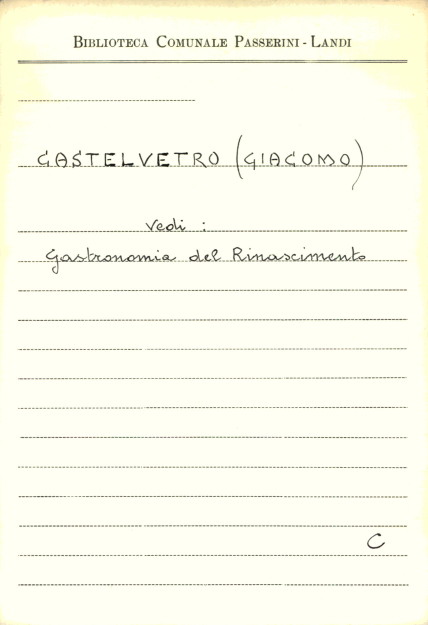 BIBLIOTECA COMUNALE PASSERINI - LANDI
CASTELVETRO (GIACOMO)
Vedi :
Gastronomia del Rinascimento
C